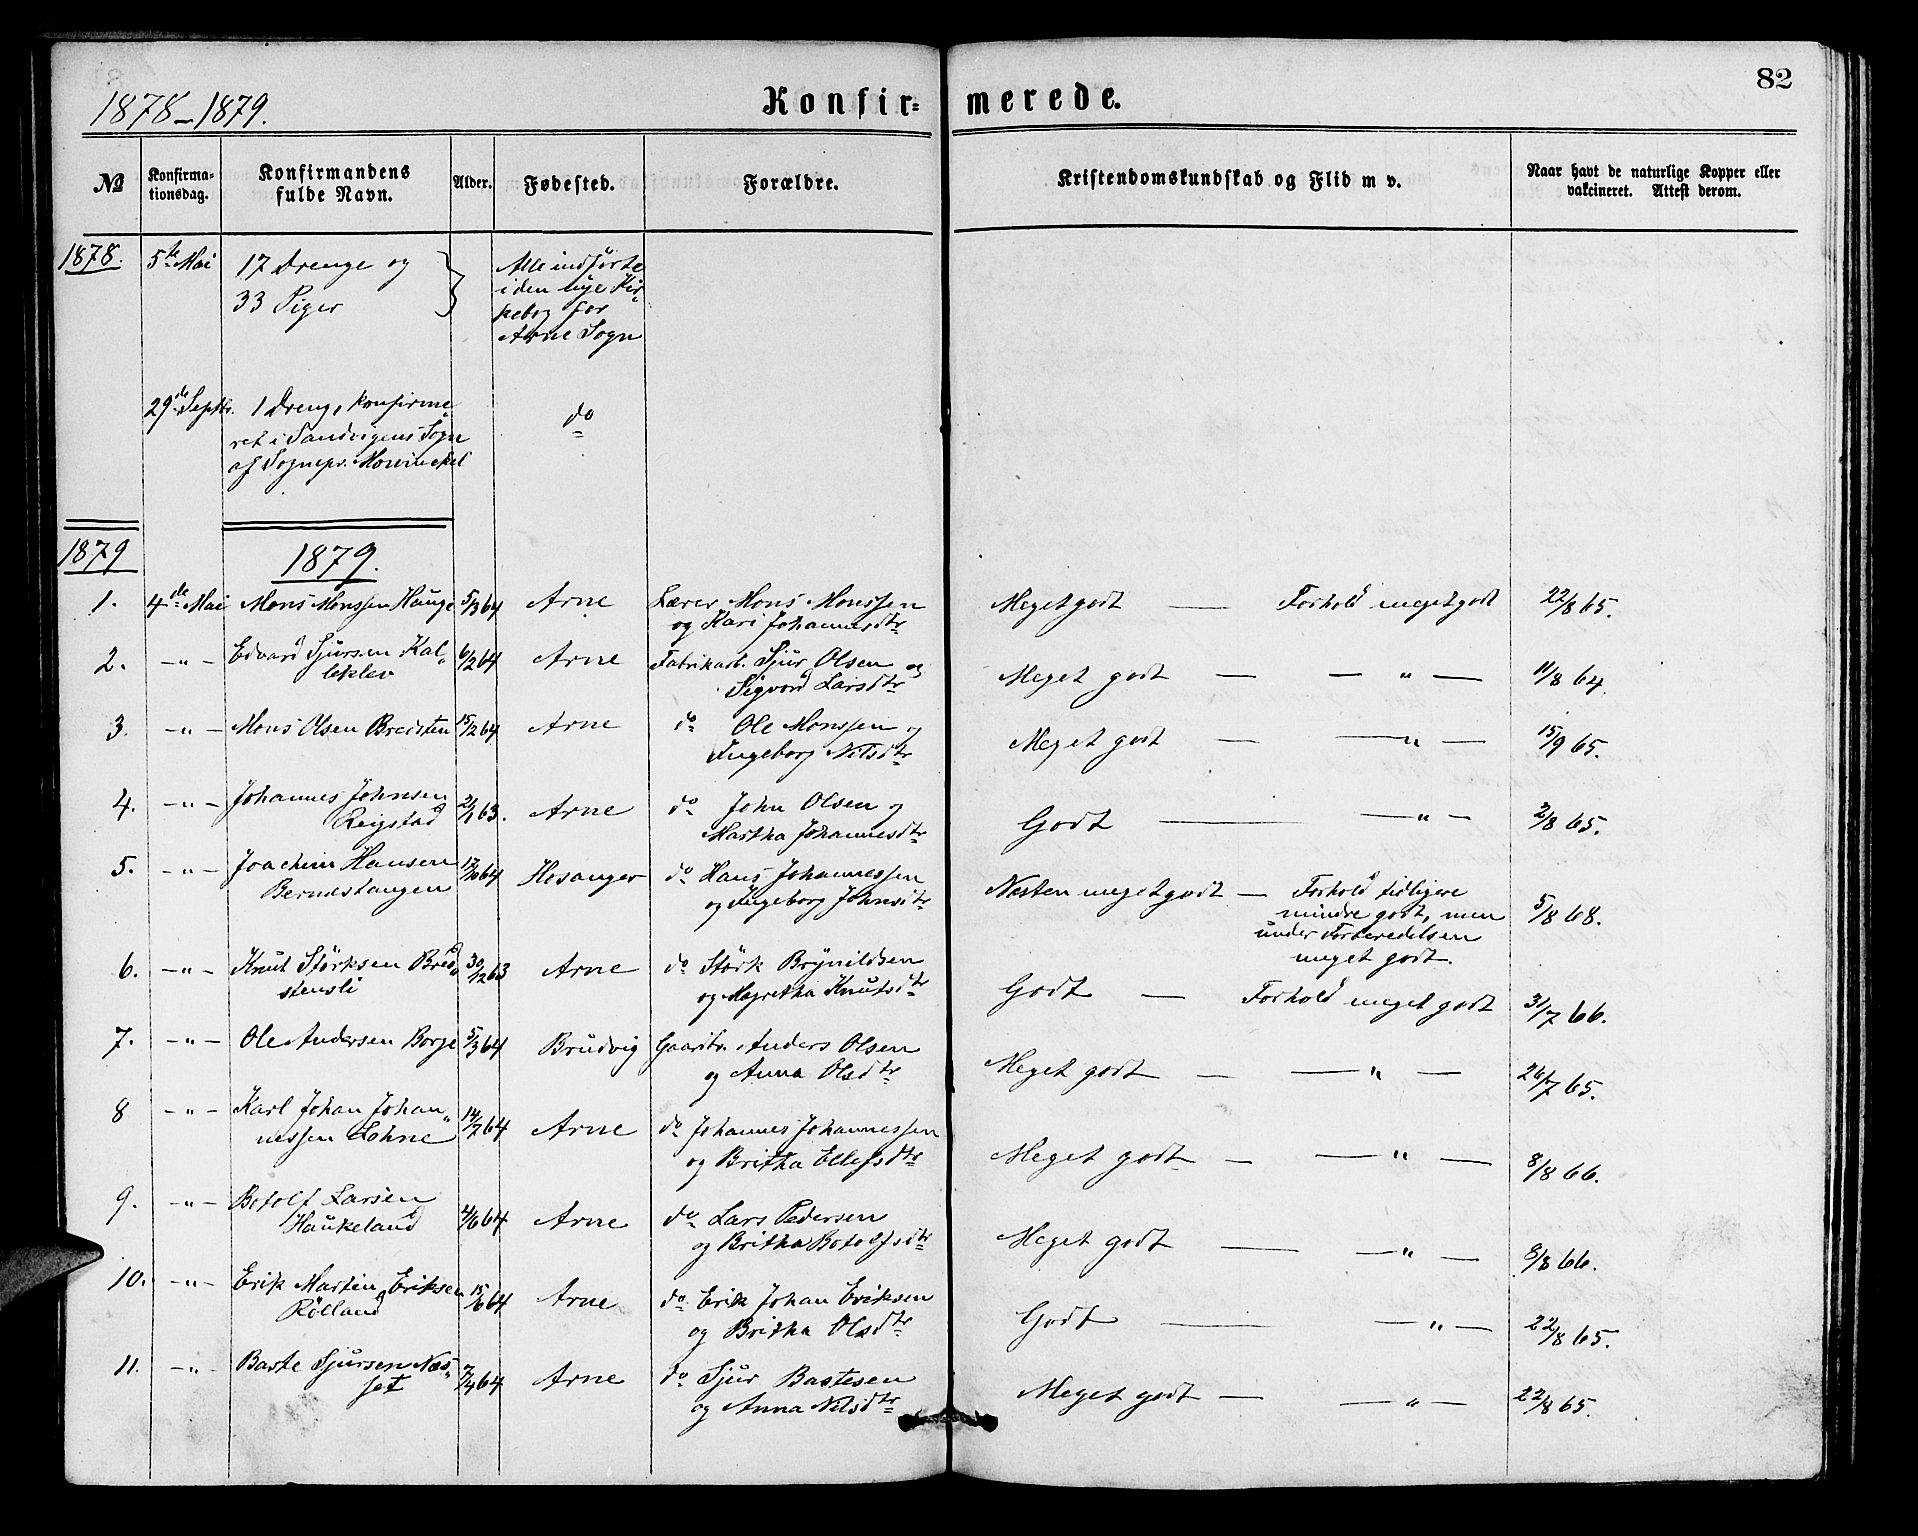 1878-1879.
Konfir= merede.
82
№
Konfirma-
tionsdag.
Konfirmandens
fulde Navn.
Alder.
Fødested.
Forældre.
Kristendomskundskab og Flid m v.
Naar havt de naturlige Kopper eller
vakcineret. Attest derom.
1878. 5te Mai 17 Drenge og
33 Piger
Alle indførte
i den nye Kir-
kebog for
Arne Sogn
29de Septbr. 1 Dreng, konfirme-
ret i Sandvigens Sogn
af Sognepr. Mowinckel
do
1879 1879.
1. 4de Mai Mons Monssen Hauge 5/3 64 Arne Lærer Mons Monssen Meget godt — Forhold meget godt 22/8 65.
og Kari Johannesdtr
2. -"- Edvard Sjursen Kal- 6/2 64 Arne Fabrikarb. Sjur Olsen og Meget godt — — " — 11/8 64.
leklev Sigvord Larsdtr
3. -"- Mons Olsen Breisten 15/2 64 Arne do Ole Monssen og Meget godt — — " — 15/9 65.
Ingeborg Nilsdtr
4. -"- Johannes Johnsen 2/1 63. Arne do John Olsen og Godt — — " — 2/8 65.
Reigstad Martha Johannesdtr
5. -"- Joachim Hansen 17/10 64 Hosanger do Hans Johannessen Næsten meget godt — Forhold tidligere 5/8 68.
Berndstangen og Ingeborg Johnsdtr mindre godt, men
under Forberedelsen
meget godt.
6. -"- Knut Störksen Breid- 30/12 63 Arne do Störk Brynildsen Godt — Forhold meget godt 31/7 66.
stensli og Magretha Knutsdtr
7. -"- Ole Andersen Borge 5/3 64 Brudvig Gaardbr. Anders Olsen Meget godt — — " — 26/7 65.
og Anna Olsdtr
8 -"- Karl Johan Johan- 14/7 64 Arne do Johannes Johannessen Meget godt — — " — 8/8 66.
nessen Lohne og Britha Ellefsdtr
9. -"- Botolf Larsen 4/6 64 Arne do Lars Pedersen Meget godt — — " — 8/8 66.
Haukeland og Britha Botolfsdtr
10. -"- Erik Martin Eriksen 15/6 64 Arne do Erik Johan Eriksen Godt — — " — 22/8 65.
Rölland og Britha Olsdtr
11. -"- Baste Sjursen Næs- 7/4 64 Arne do Sjur Bastesen Meget godt — — " — 22/8 65.
set og Anna Nilsdtr